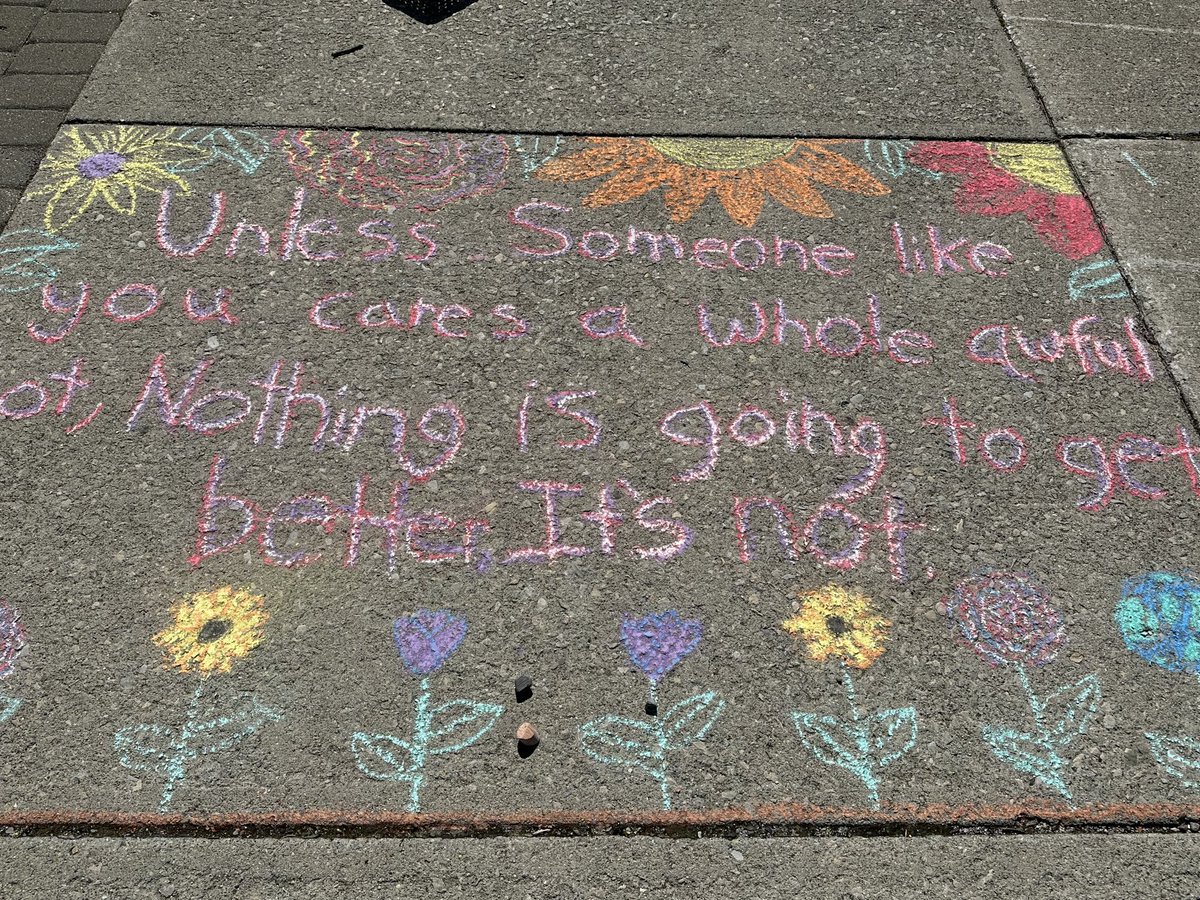 Unless Someone like
you cares a whole awful
ot, Nothing is going to get
better, It's not.